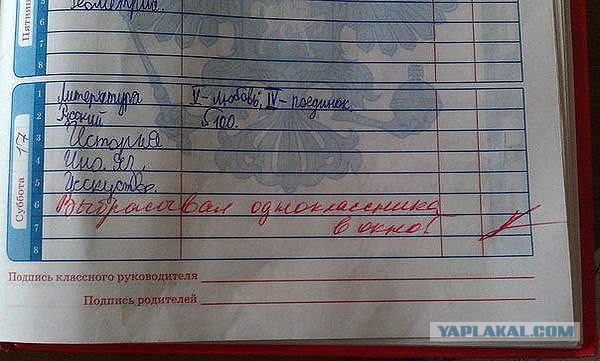 Пятница
5 Геометрия
6
7
8
Суббота 17
1 Литература V - любовь, IV - поединок.
2 Русский §100.
3 История
4 Ино. яз.
5 Исскуство.
6 Выбрасывал одноклассника
7 в окно!
8
Подпись классного руководителя
Подпись родителей
YAPLAKAL.COM